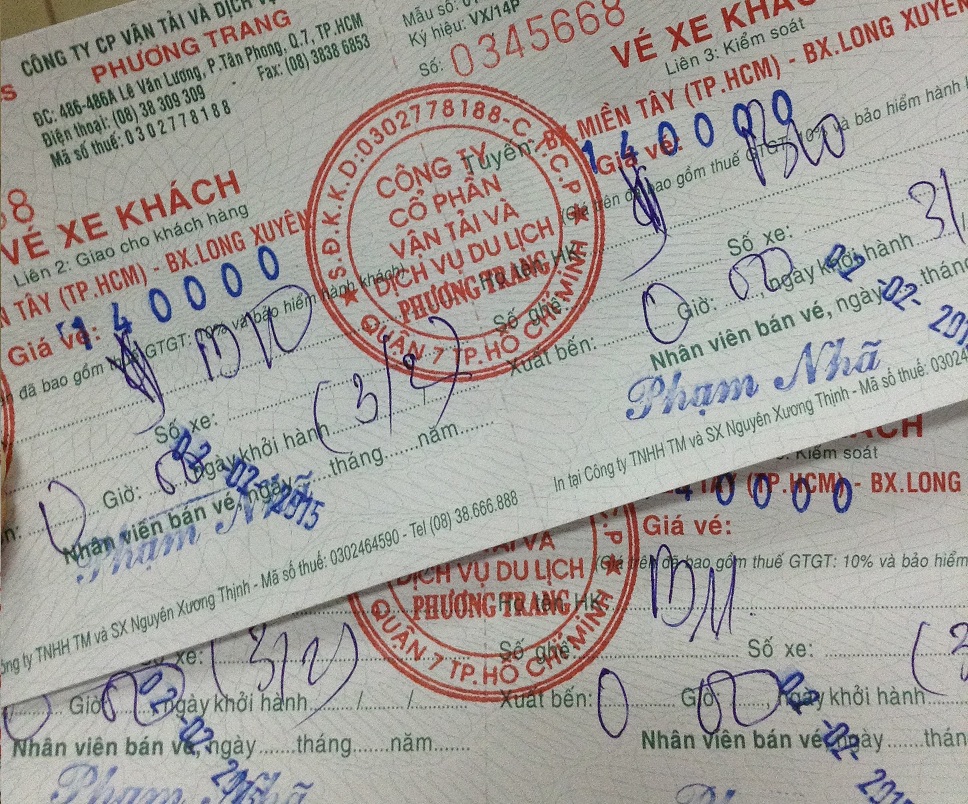 CÔNG TY CP VẬN TẢI VÀ DỊCH
PHƯƠNG TRANG
ĐC: 486-486A Lê Văn Lương, P.Tân Phong, Q.7, TP.HCM
Điện thoại: (08) 38 309 309 Fax: (08) 3838 6853
Mã số thuế: 0302778188
VÉ XE KHÁCH
Liên 2: Giao cho khách hàng
TÂY (TP.HCM) - BX.LONG XUYÊN
Giá vé: 140000
đã bao gồm thuế GTGT: 10% và bảo hiểm hành khách)
Số xe:
(3/2)
Giờ: 00 ngày khởi hành
02-02-2015
Nhân viên bán vé, ngày tháng năm
Phạm Nhã
ông ty TNHH TM và SX Nguyên Xương Thịnh - Mã số thuế: 0302464590 - Tel (08) 38.666.888
Mẫu số:
Ký hiệu: VX/14P
Số: 0345668
VÉ XE KHÁCH
Liên 3: Kiểm soát
Tuyến: BX.MIỀN TÂY (TP.HCM) - BX.LONG XUYÊN
Giá vé: 140000
(Giá trên đã bao gồm thuế GTGT: 10% và bảo hiểm hành
Họ tên HK:
Số ghế: Số xe:
Xuất bến: 0 Giờ: 00, ngày khởi hành 3/
02-02-201
Nhân viên bán vé, ngày tháng
Phạm Nhã
In tại Công ty TNHH TM và SX Nguyên Xương Thịnh - Mã số thuế: 03024
S.Đ.K.K.D:0302778188-C.T.C.P
CÔNG TY
CỔ PHẦN
VẬN TẢI VÀ
DỊCH VỤ DU LỊCH
PHƯƠNG TRANG
QUẬN 7 TP.HỒ CHÍ MINH
KHÁCH
Kiểm soát
TÂY (TP.HCM) - BX.LONG
40000
Giá vé:
(Giá trên đã bao gồm thuế GTGT: 10% và bảo hiểm
TẢI VÀ
DỊCH VỤ DU LỊCH
PHƯƠNG TRANG
QUẬN 7 TP.HỒ CHÍ MINH
Họ tên HK:
Số ghế: Số xe:
Xuất bến: 0 Giờ: 00, ngày khởi hành
02-02-201
Nhân viên bán vé, ngày thán
xe: (3/2)
Giờ: 00, ngày khởi hành / /
02-02-201
Nhân viên bán vé, ngày tháng năm
Phạm Nhã